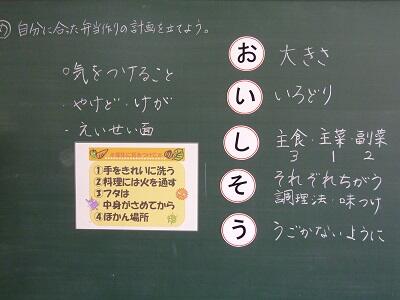 め 自分に合った弁当作りの計画を立てよう。
○気をつけること
・やけど・けが
・えいせい面
①手をきれいに洗う
②料理には火を通す
③フタは
中身がさめてから
④ほかん場所
お 大きさ
い いろどり
し 主食・主菜・副菜
3 1 2
そ それぞれちがう
調理法・味つけ
う うごかないように